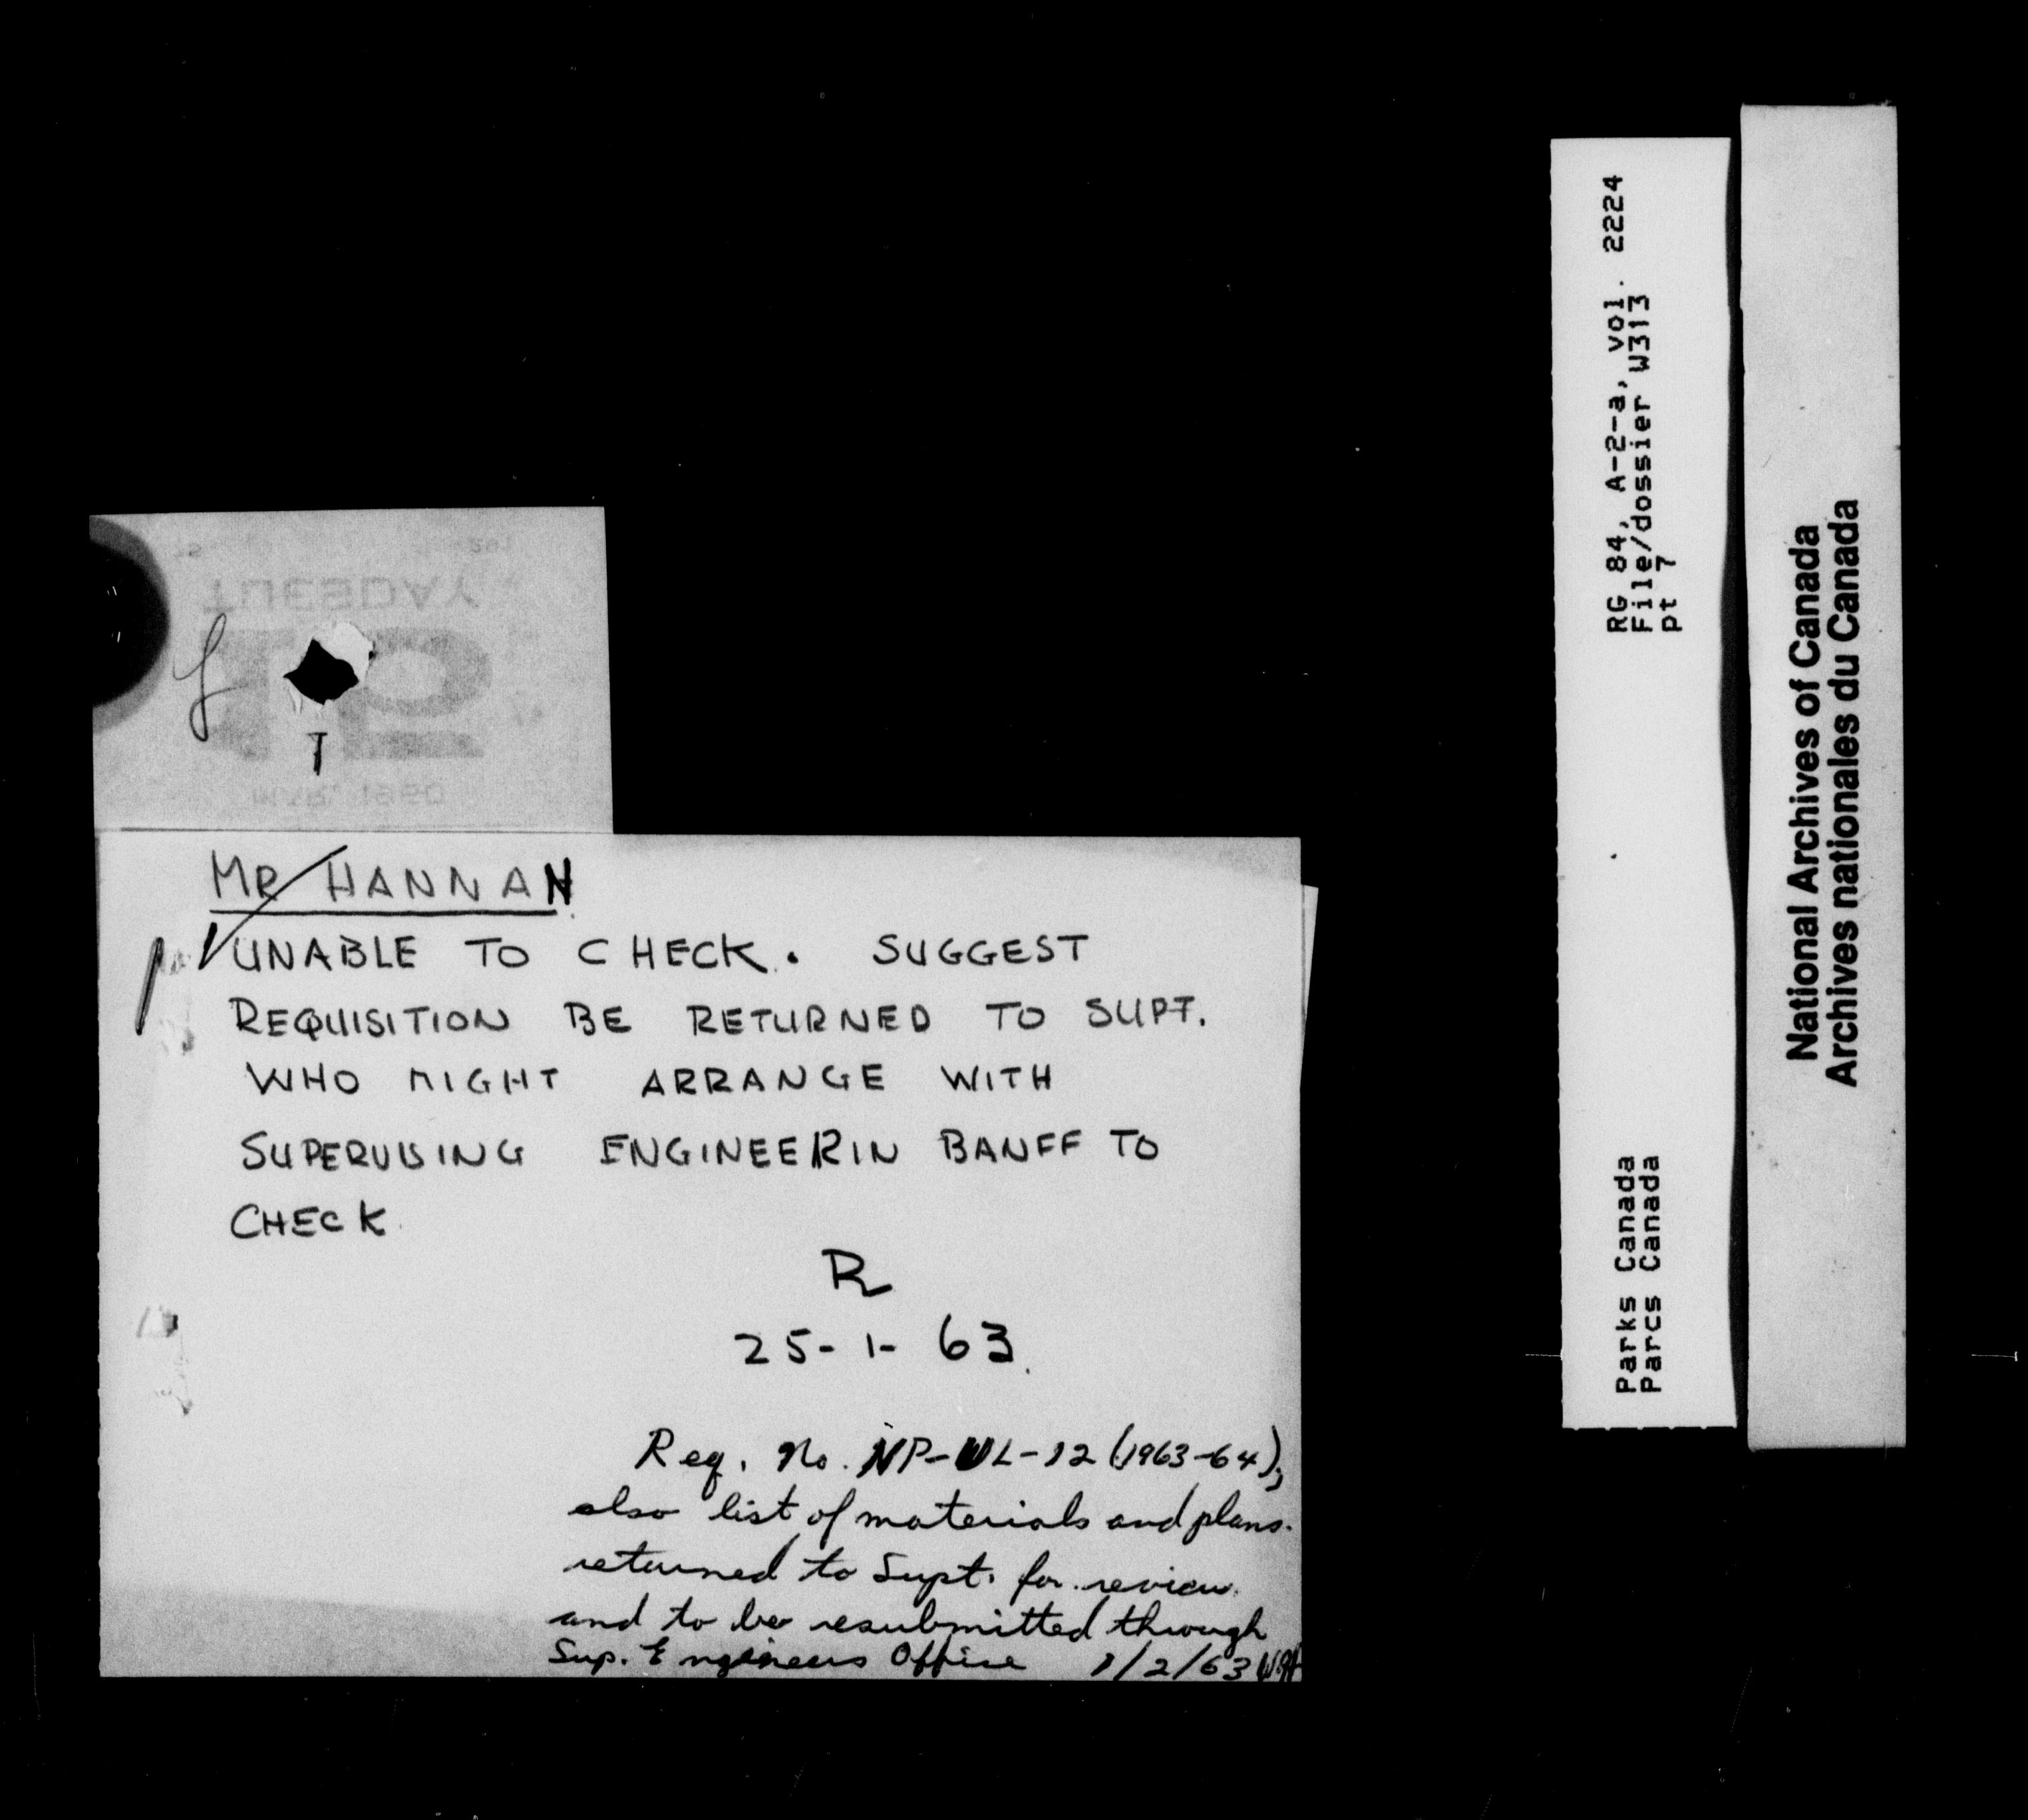 TUESDAY
MAR 1960
MR HANNAH
UNABLE TO CHECK. SUGGEST
REQUISITION BE RETURNED TO SUPT.
WHO MIGHT ARRANGE WITH
SUPERVISING ENGINEER IN BANFF TO
CHECK
R
25-1-63.
Req. No. NP-WL-12 (1963-64);
also list of materials and plans.
returned to Supt. for review
and to be resubmitted through
Sup. Engineers Office 1/2/63
RG 84, A-2-a, vol. 2224
File/dossier W313
pt 7
Parks Canada
Parcs Canada
National Archives of Canada
Archives nationales du Canada